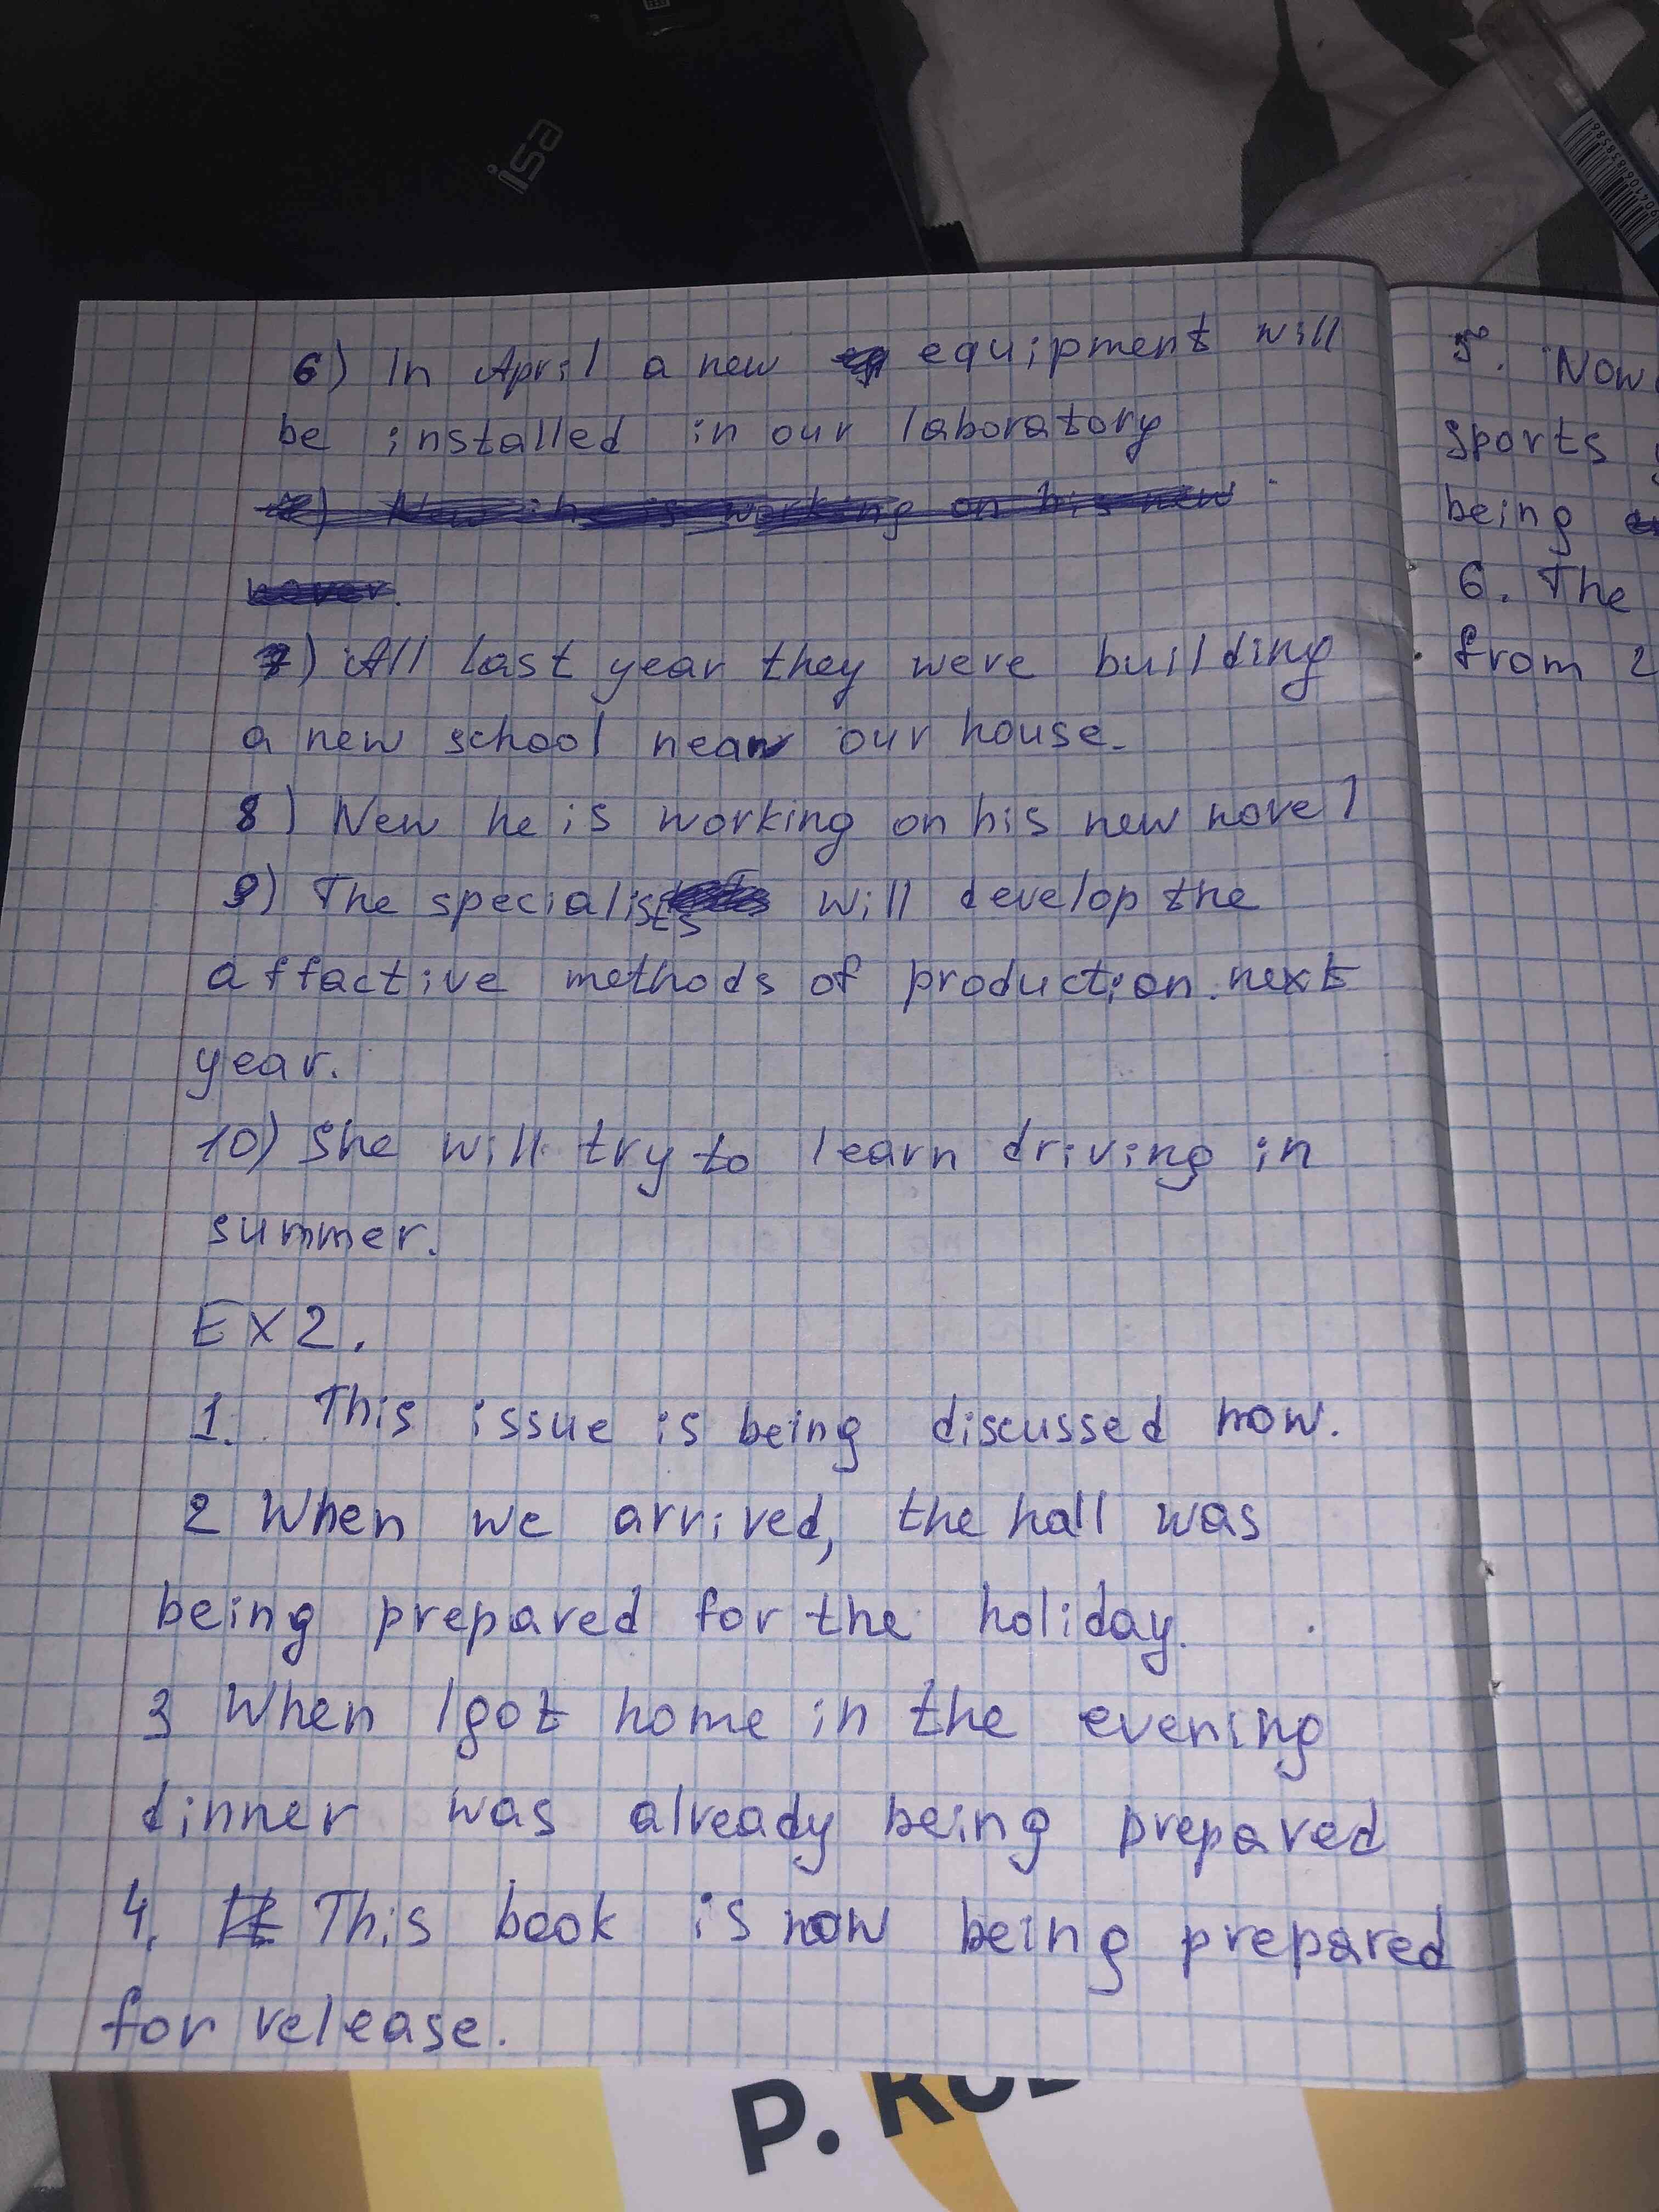 isa
6) In April a new equipment will
be installed in our laboratory
7) New he is working on his new
nover.
7) All last year they were building
a new school near our house.
8) New he is working on his new novel
9) The specialists will develop the
affactive methods of production. next
year.
10) She will try to learn driving in
summer.
EX2.
1. This issue is being discussed now.
2 When we arrived, the hall was
being prepared for the holiday.
3 When I got home in the evening
dinner was already being prepared
4. It This book is now being prepared
for release.
5. Now
sports
being
6. The
from 2
P.